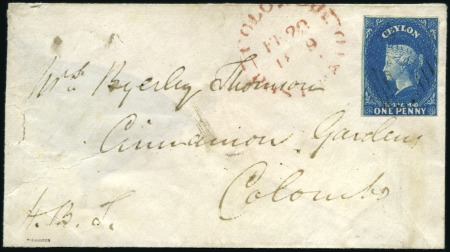 COLOMBO
FE 20
CEYLON
ONE PENNY
Mrs. Byerley Thomson
Cinnamon Gardens
Colombo
H. B. T.